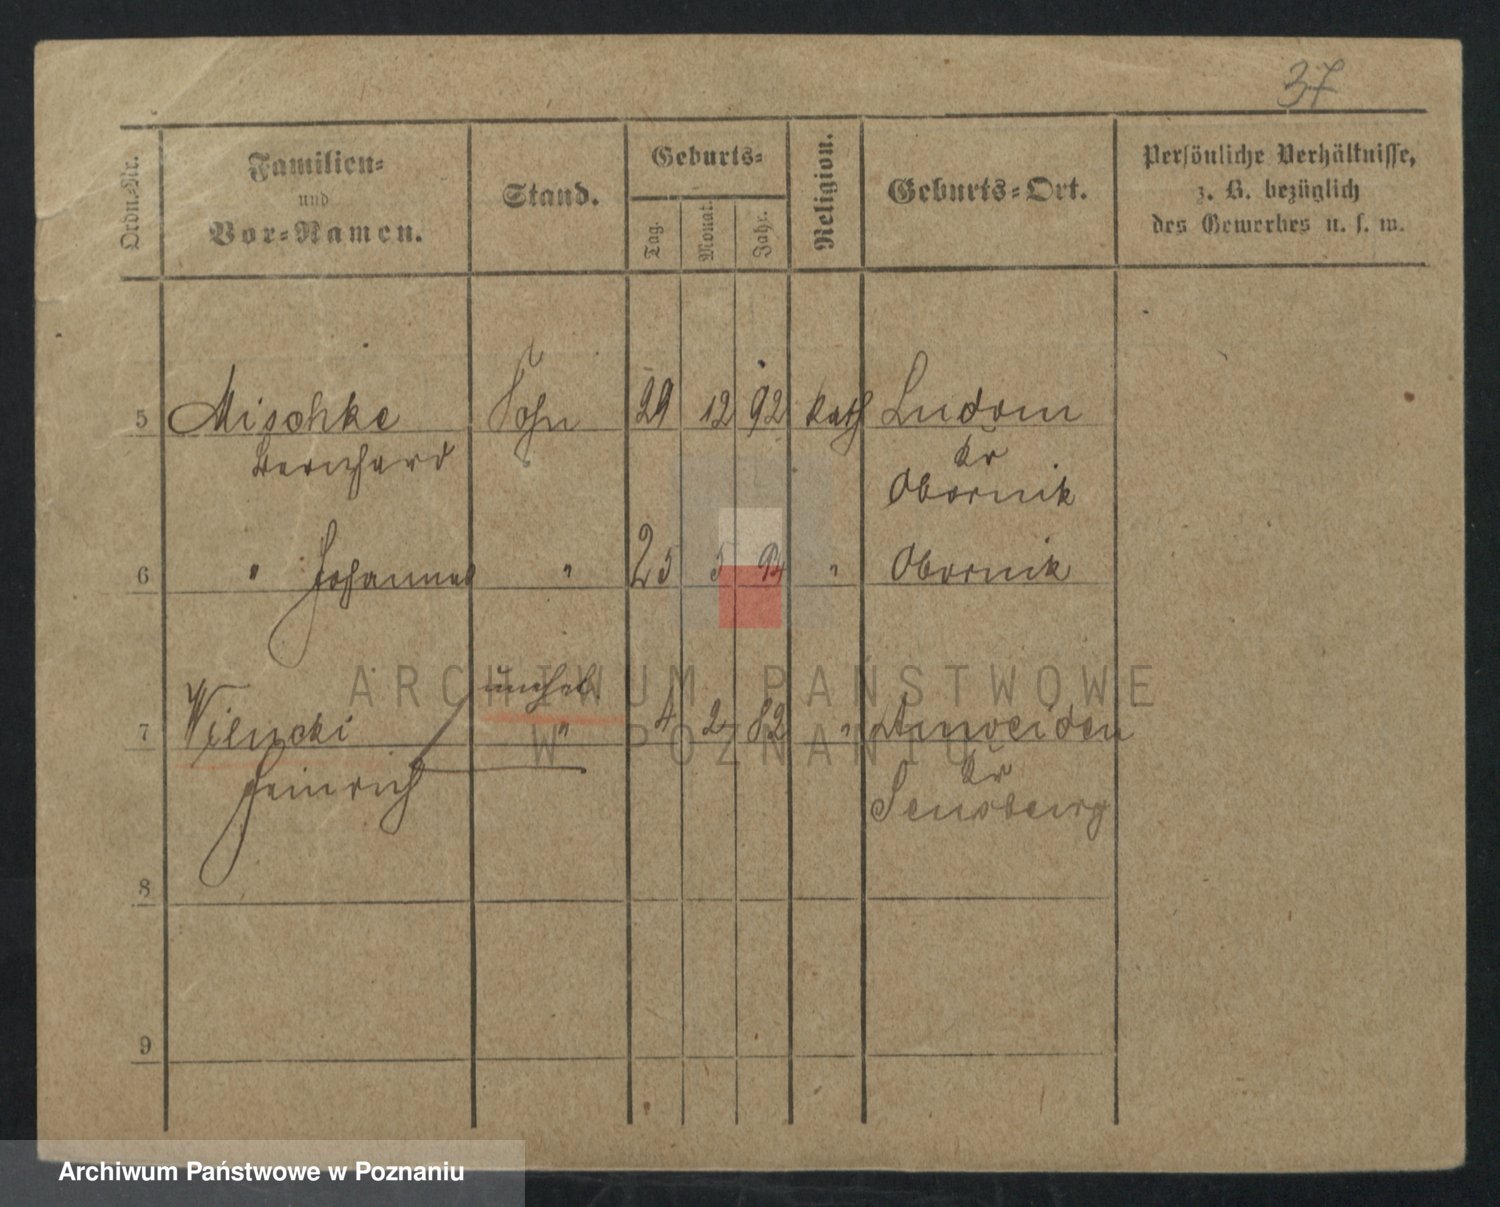 37
Ordn.-Nr.
Familien-
und
Vor-Namen.
Stand.
Geburts-
Tag.
Monat.
Jahr.
Religion.
Geburts-Ort.
Persönliche Verhältnisse,
z. B. bezüglich
des Gewerbes u. s. w.
5 Mischke Sohn 29 12 92 kath Ludom
Bernhard Kr
Obornik
6 " Johannes " 25 5 94 " Obornik
unehel.
7 " 4 2 82 "
Heinrich Kr
8
9
ARCHIWUM PAŃSTWOWE
W POZNANIU
Archiwum Państwowe w Poznaniu